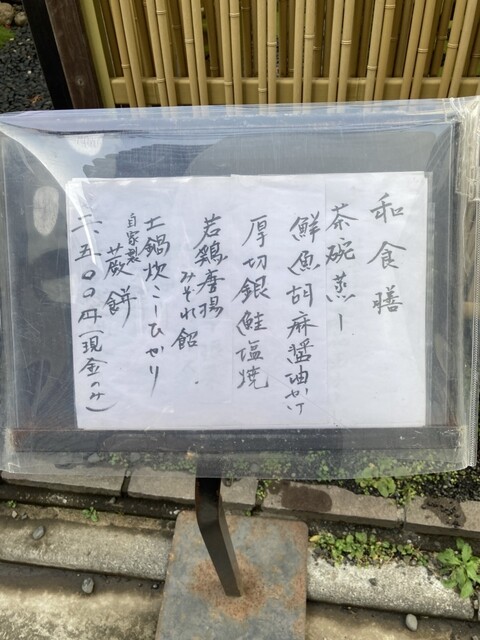 和食膳
茶碗蒸し
鮮魚胡麻醤油かけ
厚切銀鮭塩焼
若鶏唐揚
みぞれ餡
土鍋炊こしひかり
自家製
蕨餅
二、五〇〇円(現金のみ)